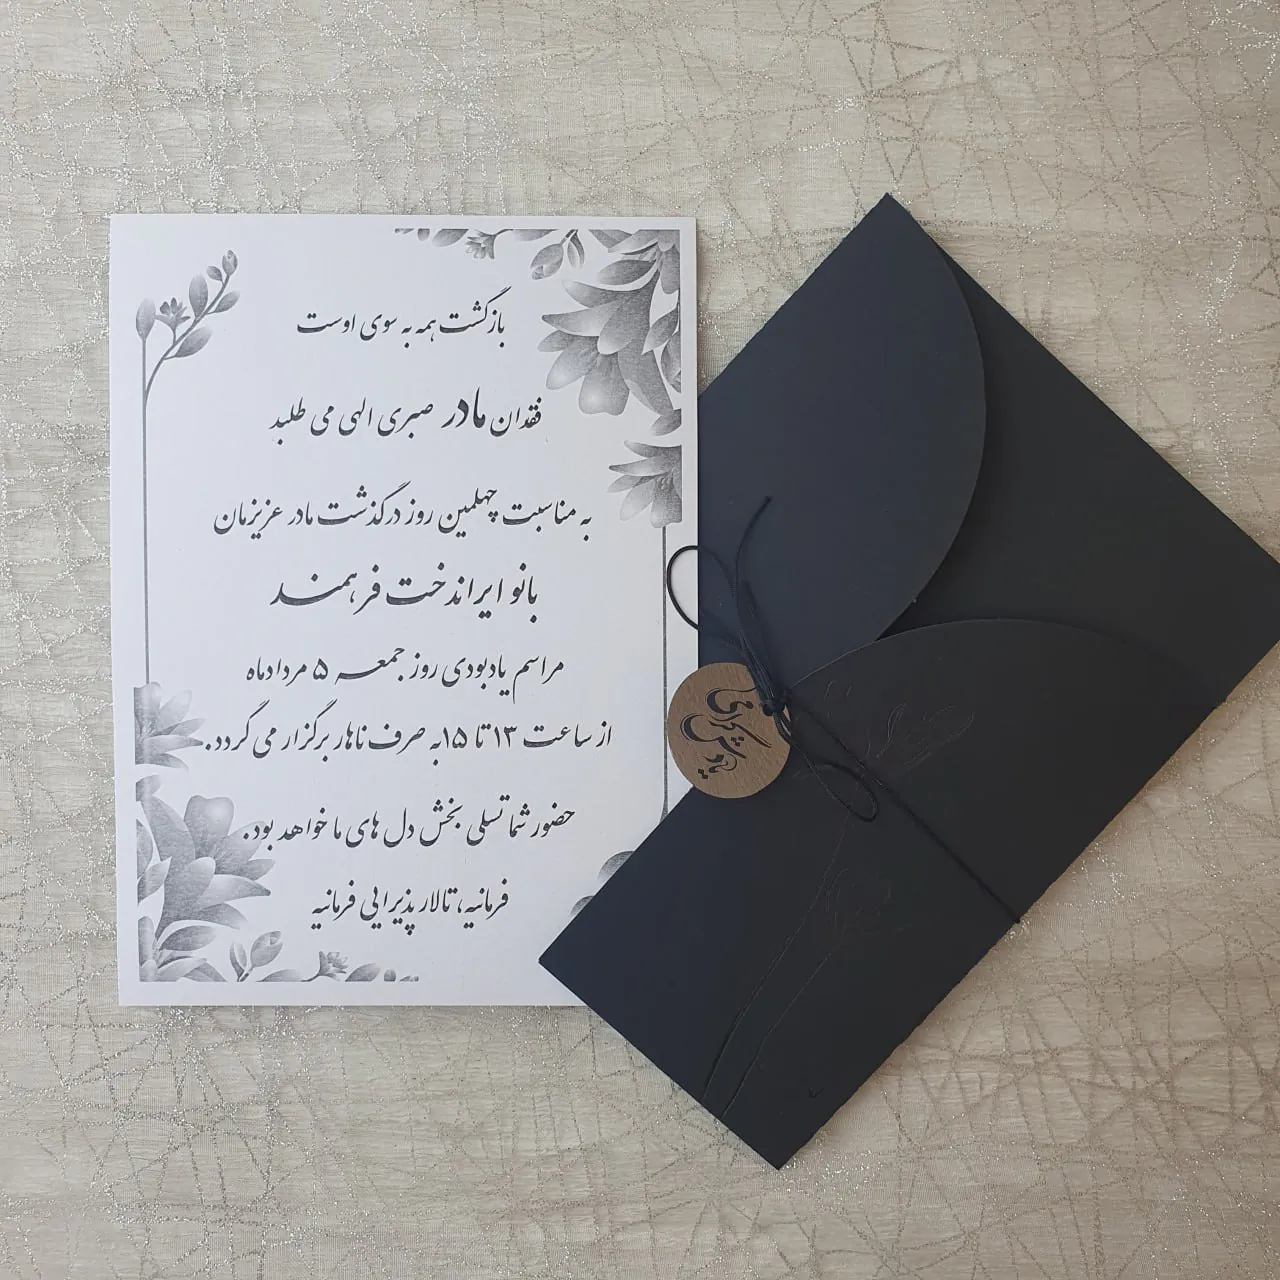 بازگشت همه به سوی اوست
فقدان مادر صبری الهی می طلبد
به مناسبت چهلمین روز درگذشت مادر عزیزمان
بانو ایراندخت فرهمند
مراسم یادبودی روز جمعه ۵ مردادماه
از ساعت ۱۳ تا ۱۵ به صرف ناهار برگزار می گردد.
حضور شما تسلی بخش دل های ما خواهد بود.
فرمانیه، تالار پذیرایی فرمانیه
یادش گرامی